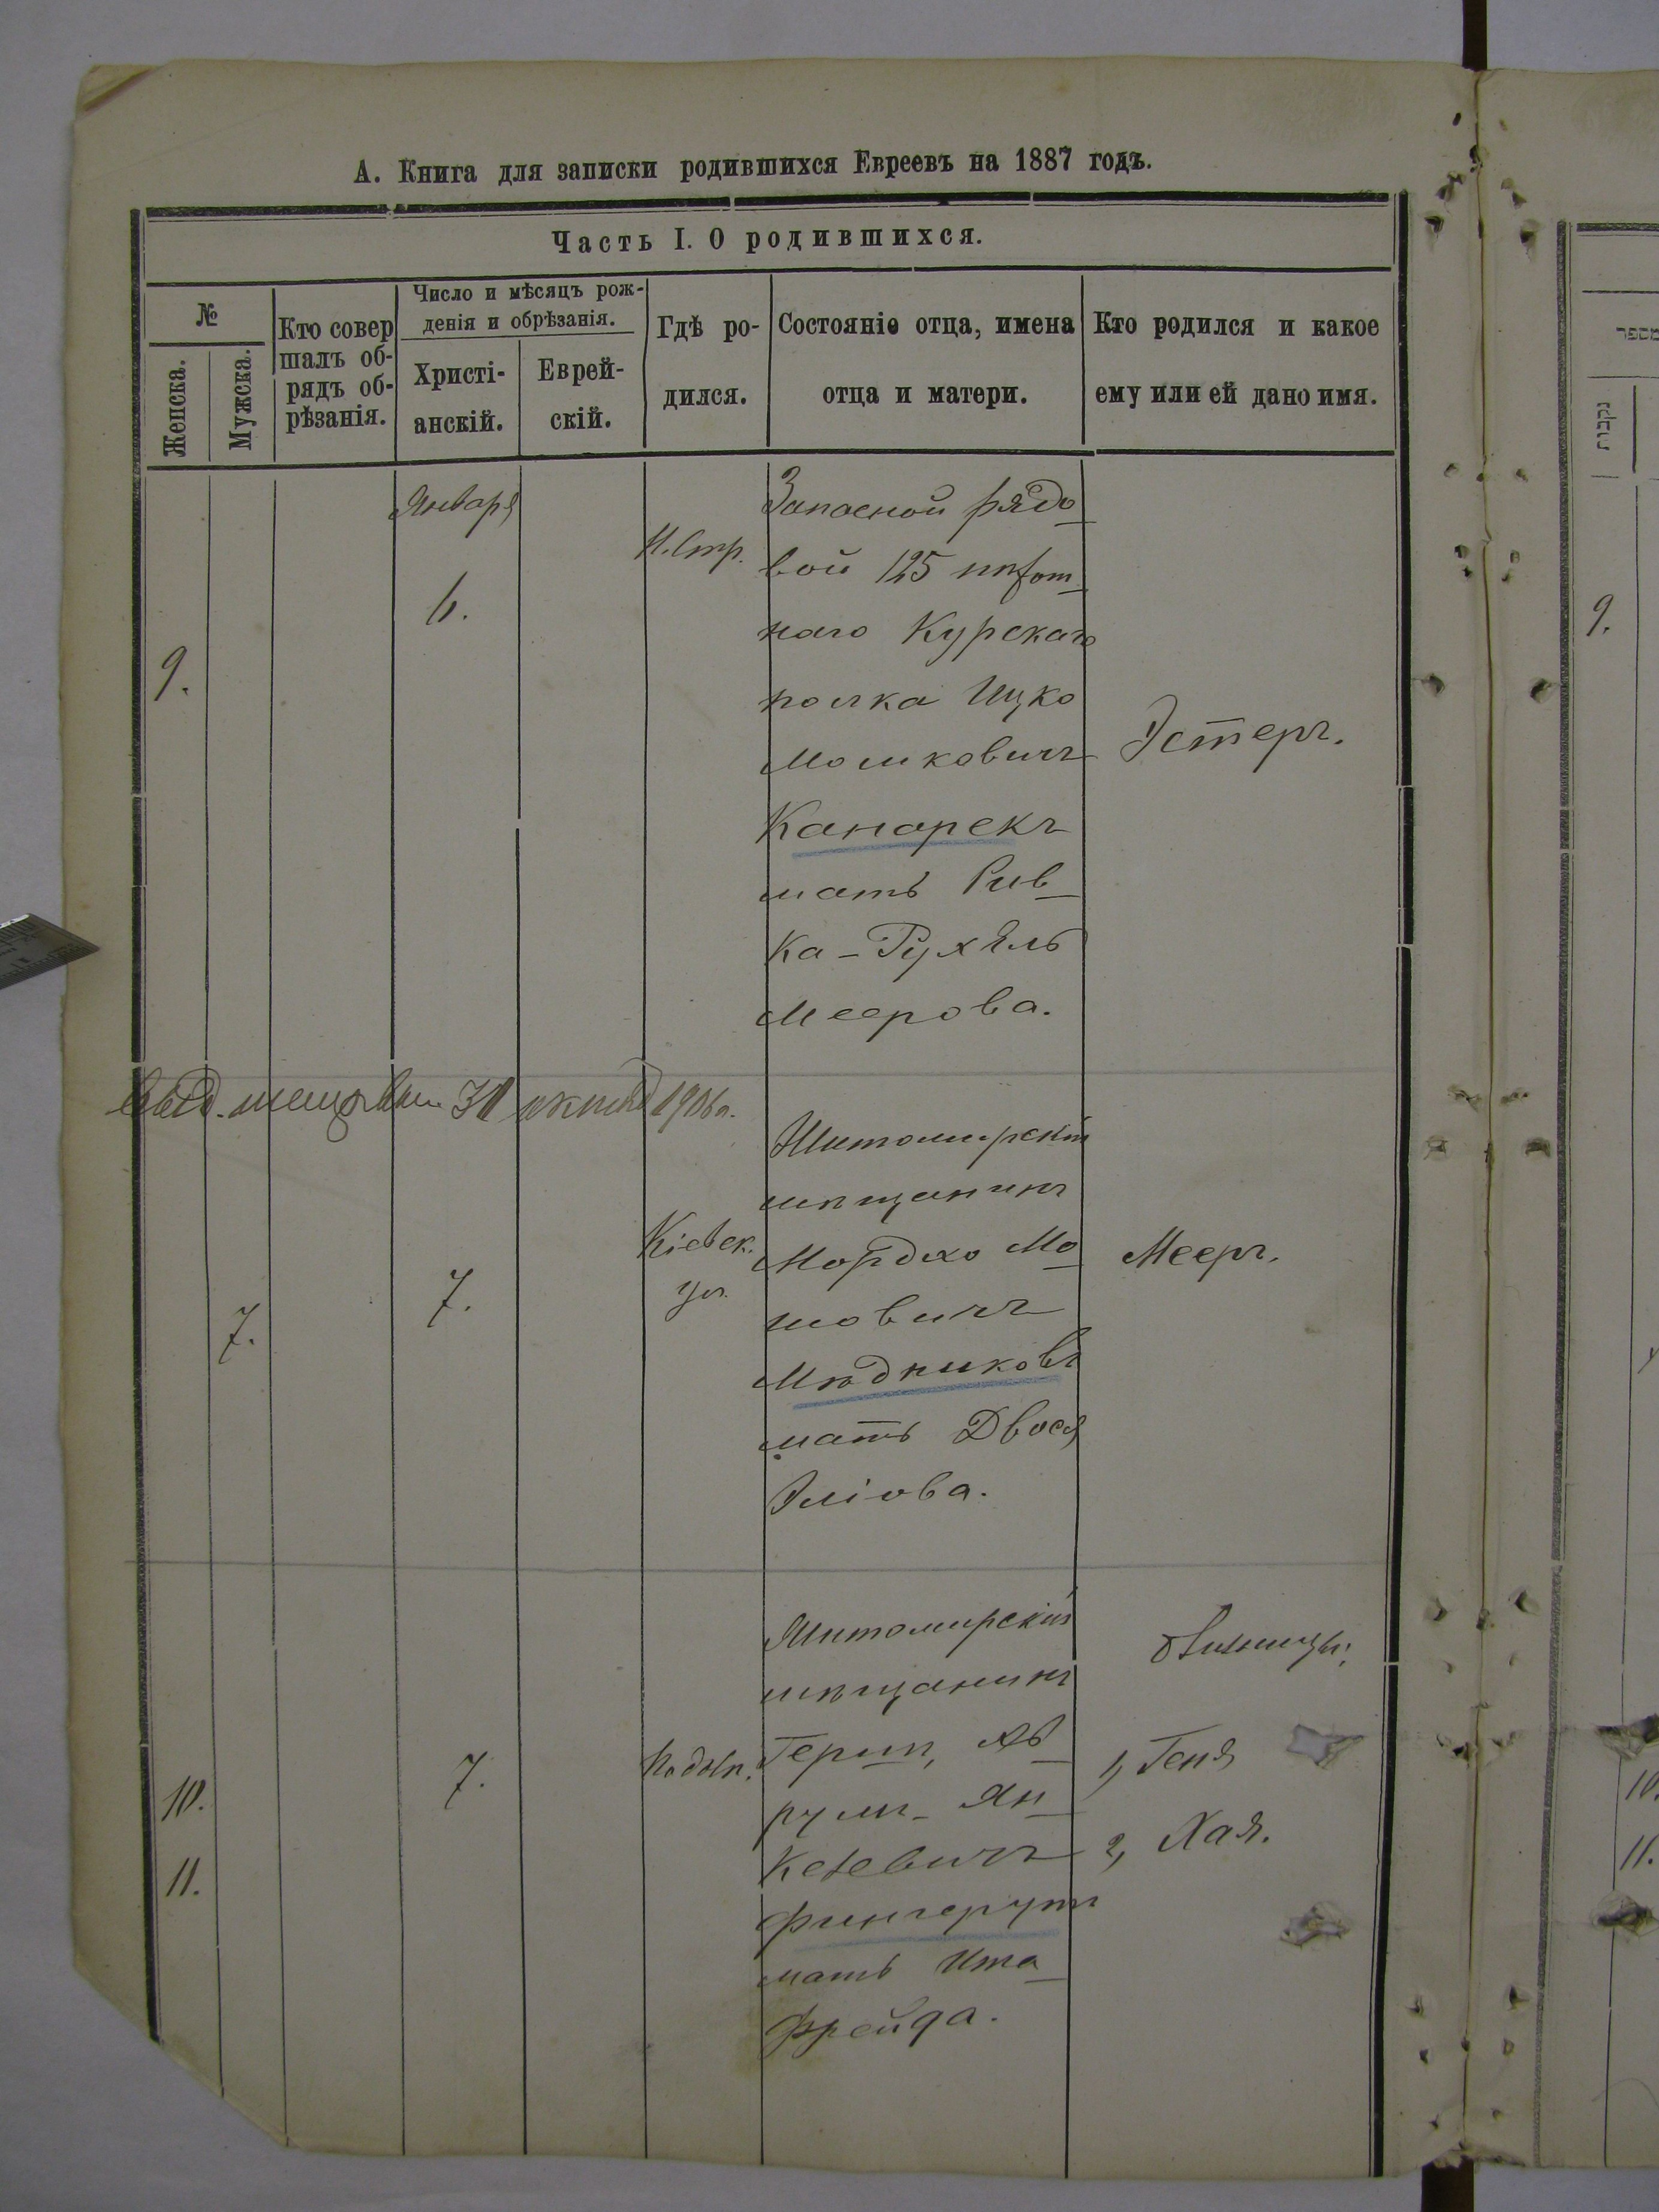 А. Книга для записки родившихся Евреевъ на 1887 годъ.
Часть I. О родившихся.
№
Женска.
Мужска.
Кто совер
шалъ об-
рядъ об-
рѣзанія.
Число и мѣсяцъ рож-
денія и обрѣзанія.
Христі-
анскій.
Еврей-
скій.
Гдѣ ро-
дился.
Состояніе отца, имена
отца и матери.
Кто родился и какое
ему или ей дано имя.
9.
Января
6.
Н. Стр.
Запасной рядо
вой 125 пѣхот
наго Курскаго
полка Ицко
Мошковичъ
Канарекъ
мать Рив
ка-Рухель
Меерова.
Эстеръ.
31 1906 г.
7.
7.
Кіевск.
ул.
Житомирскій
мѣщанинъ
Мордко Мо
шовичъ
Мѣдниковъ
мать Двося
Эліова.
Мееръ.
10.
11.
7.
Житомирскій
мѣщанинъ
Герш, Ав
румъ-Ян
келевичъ
Фингерутъ
мать Ита
Фрейда.
близницы:
1, Геня
2, Хая.
9.
10.
11.
מספר
נקבות